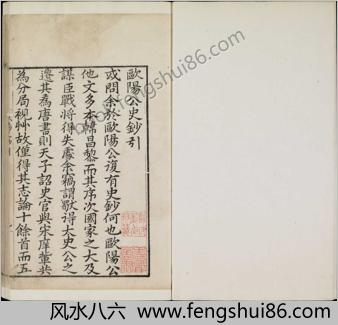 歐陽公史鈔引
或問余於歐陽公復有史鈔何也歐陽公
他文多本韓昌黎而其序次國家之大及
謀臣戰將得失處余竊謂獨得太史公之
遷其為唐書則天子詔史官與宋庠輩共
為分局視艸故僅得其志論十餘首而五
www.fengshui86.com
风水八六 www.fengshui86.com